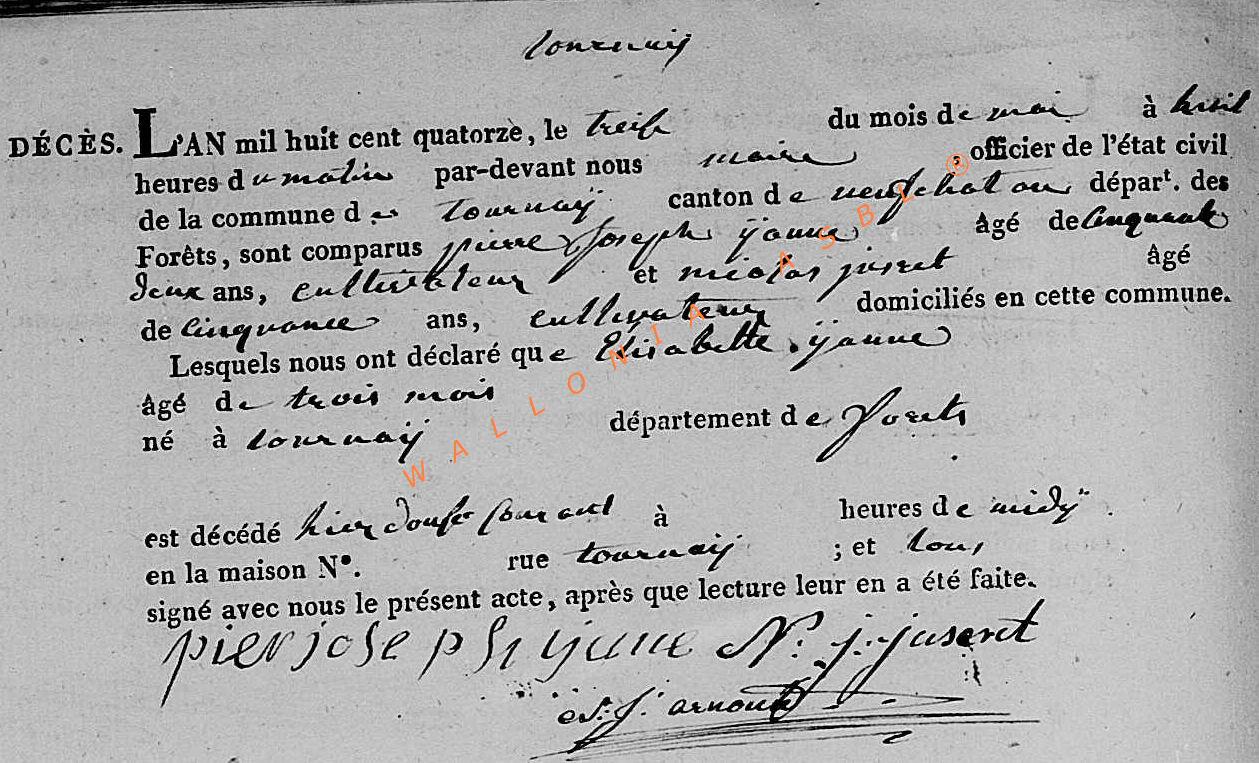 tournaÿ
DÉCÈS. L'AN mil huit cent quatorze, le treise du mois de mai à huit
heures du matin par-devant nous maire officier de l'état civil
de la commune de tournaÿ canton de neufchateau départ. des
Forêts, sont comparus pierre Joseph ÿanne âgé de Cinquante
deux ans, cultivateur et nicolas juseret âgé
de Cinquance ans, cultivateur domiciliés en cette commune.
Lesquels nous ont déclaré que Elisabette ÿanne
âgé de trois mois
né à tournaÿ département de Forets
est décédé hier douse Courant à heures de midÿ .
en la maison N°. rue tournaÿ ; et tous
signé avec nous le présent acte, après que lecture leur en a été faite.
pier joseph ÿane N. j. juseret
j. arnould
WALLONIA ASBL ®